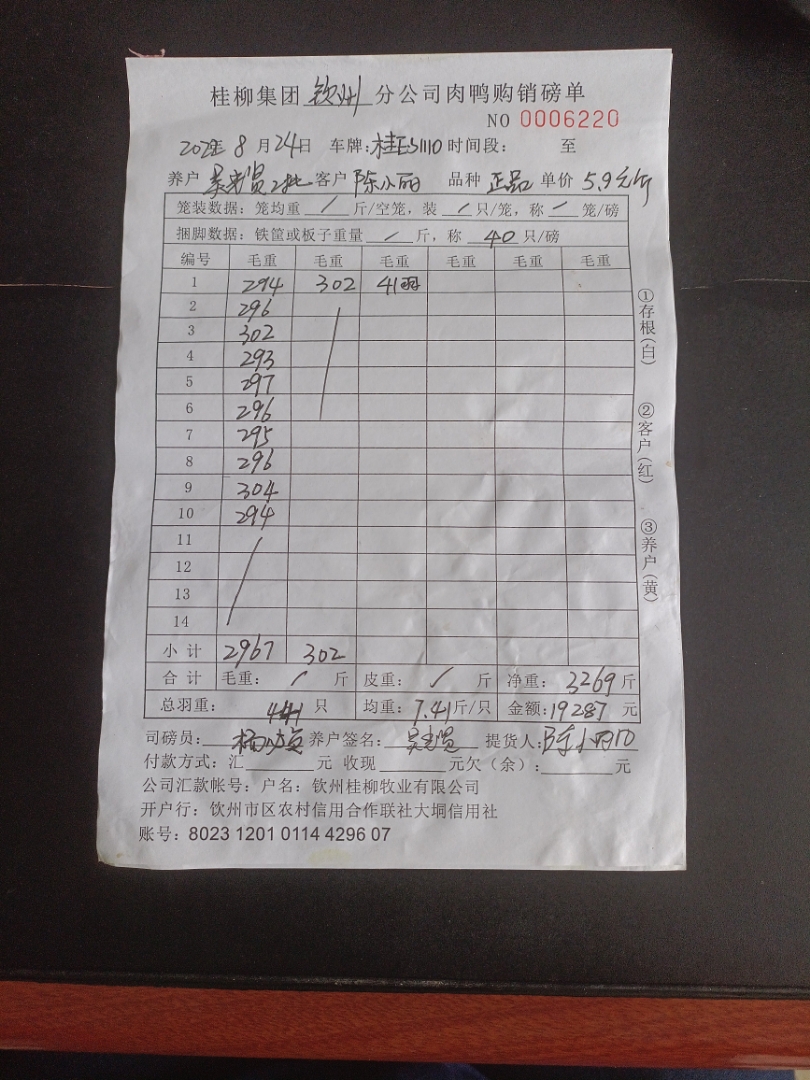 桂柳集团 钦州 分公司肉鸭购销磅单
NO 0006220
8 月 24日 车牌: 时间段: 至
养户 客户 陈小丽 品种 正品 单价 5.9元/斤
笼装数据: 笼均重 / 斤/空笼, 装 / 只/笼, 称 / 笼/磅
捆脚数据: 铁筐或板子重量 / 斤, 称 40 只/磅
编号 毛重 毛重 毛重 毛重 毛重 毛重
1 294 302 41羽
2 296
3 302
4 293
5 297
6 296
7 295
8 296
9 304
10 294
11
12
13
14
小计 2967 302
合计 毛重: / 斤 皮重: / 斤 净重: 3269 斤
总羽重: 441 只 均重: 7.41斤/只 金额: 19287 元
司磅员: 养户签名: 提货人: 陈小丽
付款方式: 汇 元 收现 元欠(余): 元
公司汇款帐号: 户名: 钦州桂柳牧业有限公司
开户行: 钦州市区农村信用合作联社大垌信用社
账号: 8023 1201 0114 4296 07
①存根(白)
②客户(红)
③养户(黄)